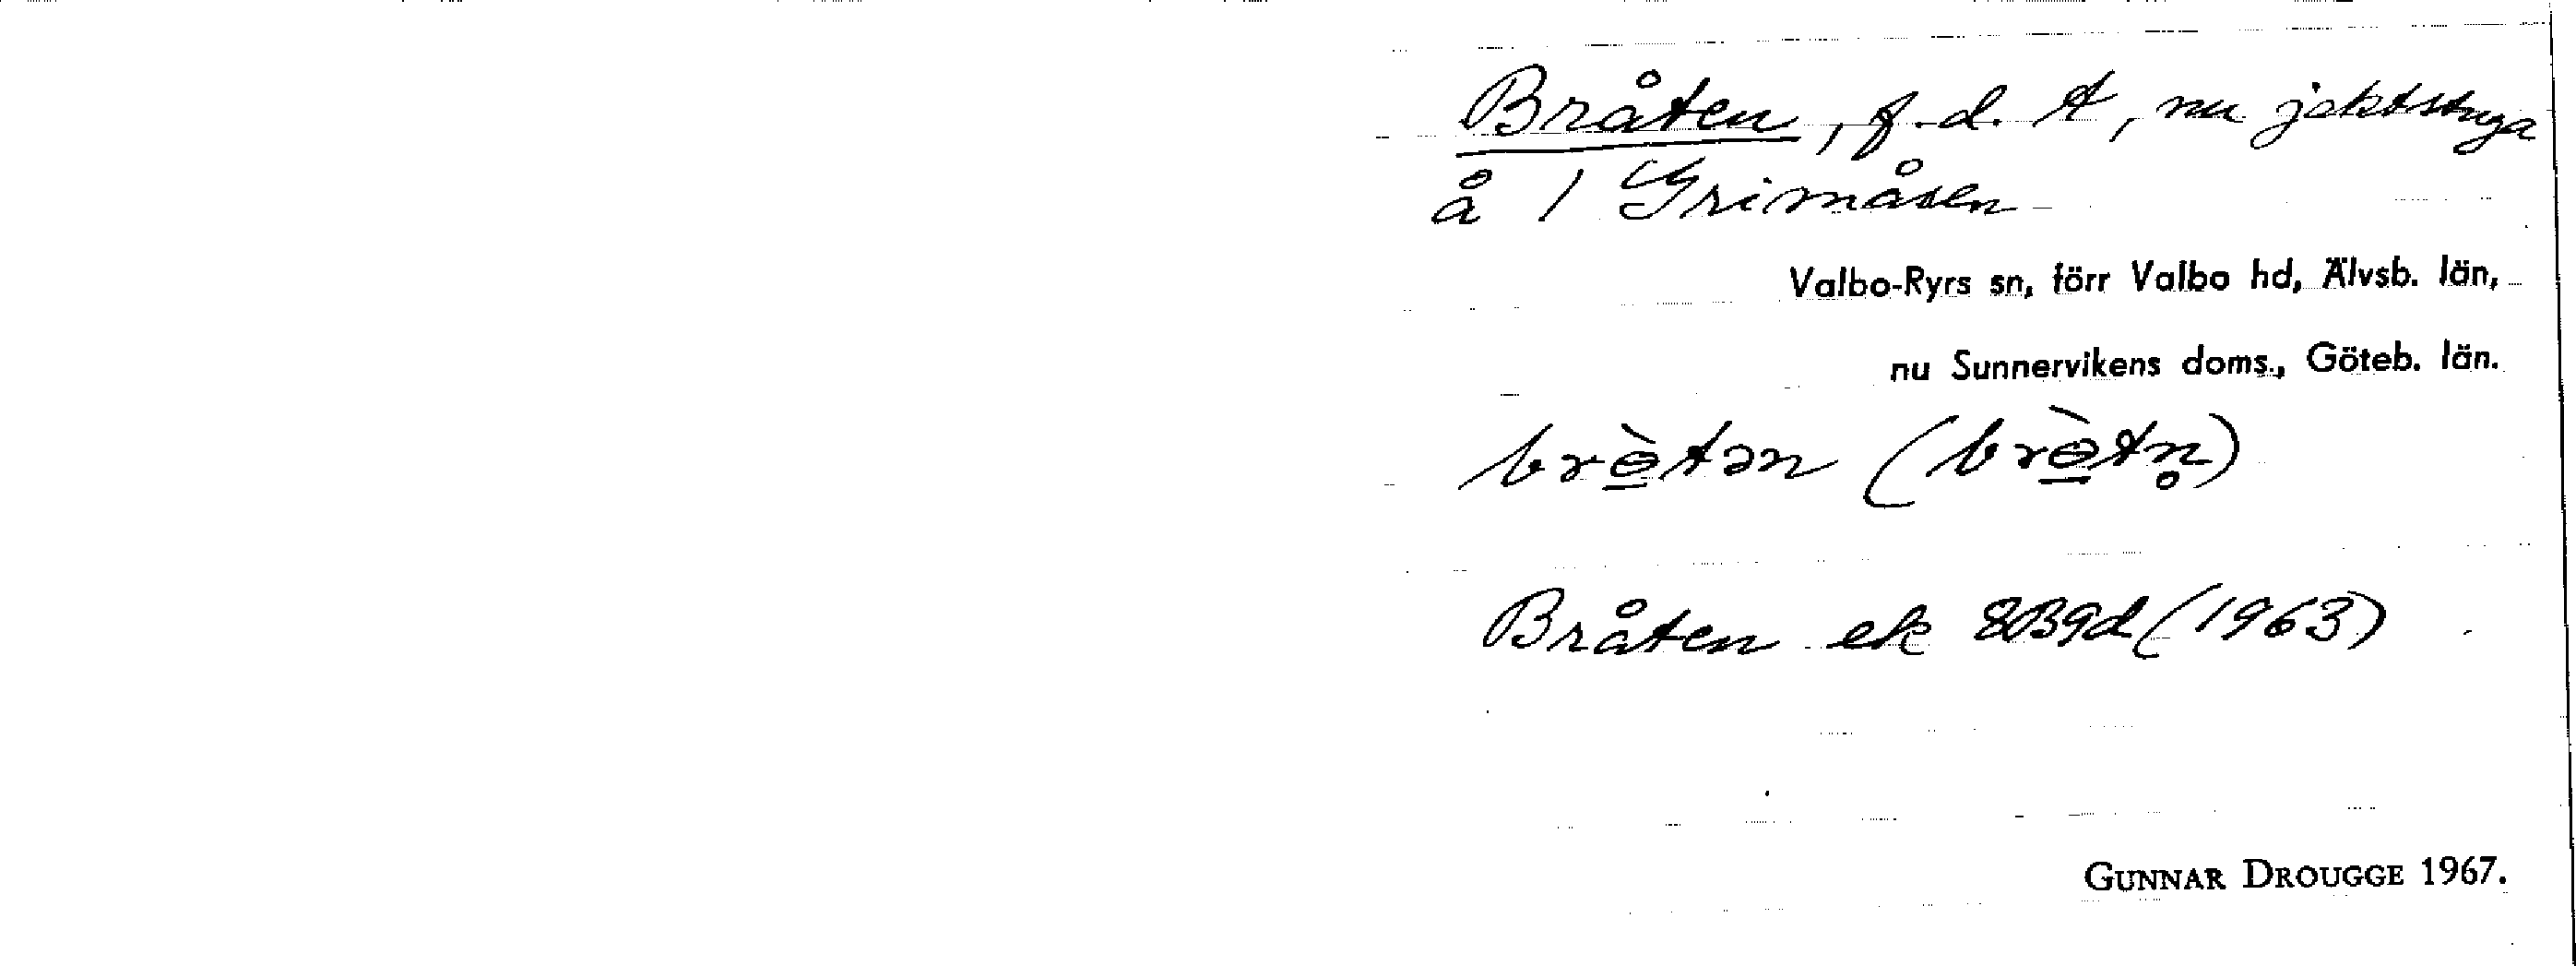 Bråten, f.d. t, nu jaktstuga
å 1 Grimåsen
Valbo-Ryrs sn, förr Valbo hd, Älvsb. län,
nu Sunnervikens doms., Göteb. län.
brɵ̱̀tən (brɵ̱̀tn̥)
Bråten ek 8B9d (1963)
GUNNAR DROUGGE 1967.